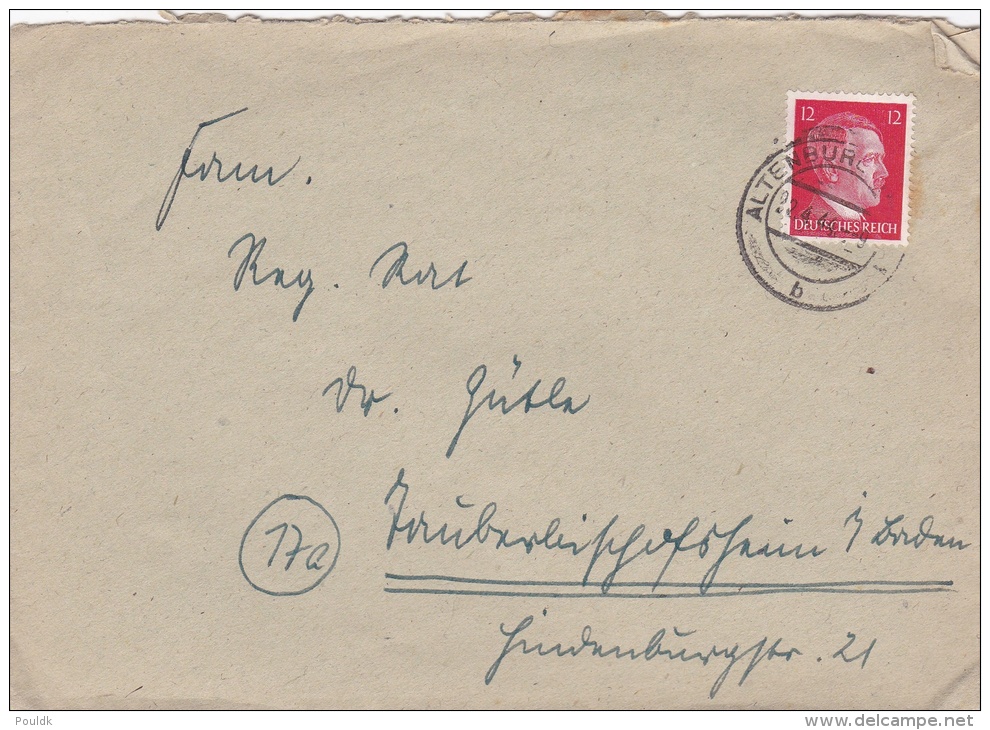 12 12
DEUTSCHES REICH
ALTENBURG
b
Fam.
Reg. Rat
Dr. Gütle
17a
Tauberbischofsheim i/Baden
Hindenburgstr. 21
Pouldk
www.delcampe.net